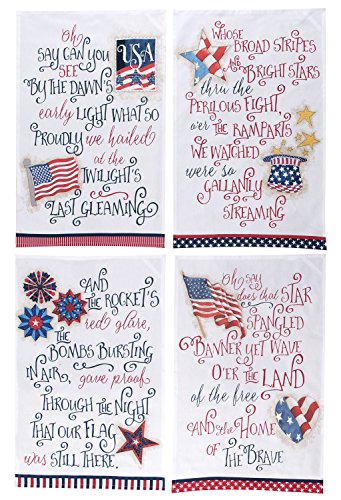 Oh
SAY CAN YOU
SEE
BY THE DAWN'S
early LIGHT WHAT SO
PROUDLY we hailed
at the
TWILIGHT'S
LAST GLEAMING
USA
WHOSE
BROAD STRIPES
AND
BRIGHT STARS
thru the
PERILOUS FIGHT
o'er THE RAMPARTS
WE WATCHED
were so
GALLANTLY
STREAMING
AND
THE ROCKET'S
red glare,
THE
BOMBS BURSTING
IN AIR, gave proof
THROUGH THE NIGHT
THAT OUR FLAG
was STILL THERE.
Oh SAY
does that STAR
SPANGLED
BANNER YET WAVE
O'ER THE LAND
of the free
AND the HOME
OF THE BRAVE